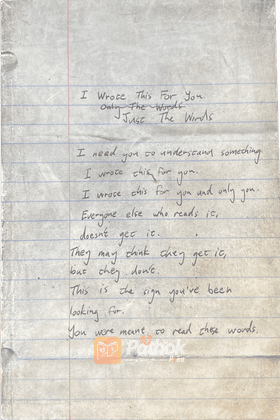 I Wrote This For You.
Only The Words
Just The Words
I need you to understand something.
I wrote this for you.
I wrote this for you and only you.
Everyone else who reads it,
doesn't get it.
They may think they get it,
but they don't.
This is the sign you've been
looking for.
You were meant to read these words.
Pathok